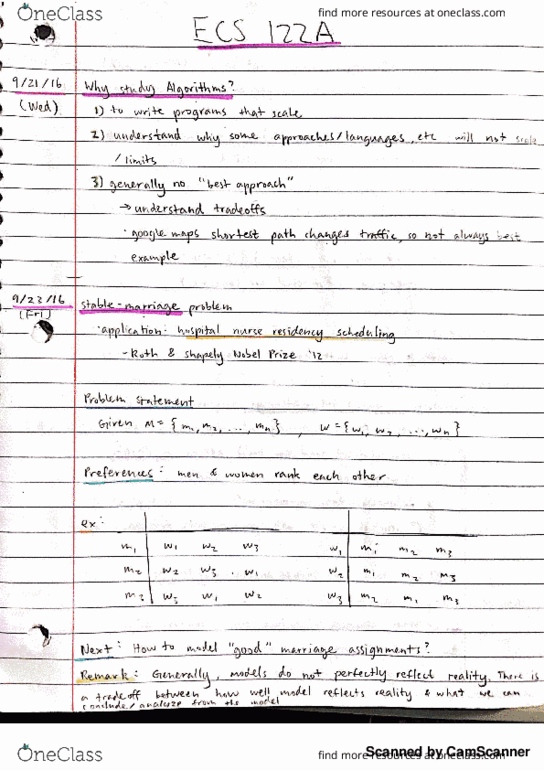 OneClass
find more resources at oneclass.com
ECS 122A
9/21/16 Why study Algorithms?
(Wed) 1) to write programs that scale
2) understand why some approaches/languages, etc will not scale
/limits
3) generally no "best approach"
→ understand tradeoffs
· google maps shortest path changes traffic, so not always best
example
9/23/16 stable-marriage problem
(Fri)
· application: hospital nurse residency scheduling
- Roth & shapely Nobel Prize '12
Problem statement
Given M = {m₁, m₂, ..., mₙ} , W = {w₁, w₂, ..., wₙ}
Preferences: men & women rank each other
ex:
m₁ w₁ w₂ w₃ w₁ m₁ m₂ m₃
m₂ w₂ w₃ w₁ w₂ m₁ m₂ m₃
m₃ w₃ w₁ w₂ w₃ m₂ m₁ m₃
Next: How to model "good" marriage assignments?
Remark: Generally, models do not perfectly reflect reality. There is
a tradeoff between how well model reflects reality & what we can
conclude/analyze from the model
Scanned by CamScanner
OneClass
find more resources at oneclass.com